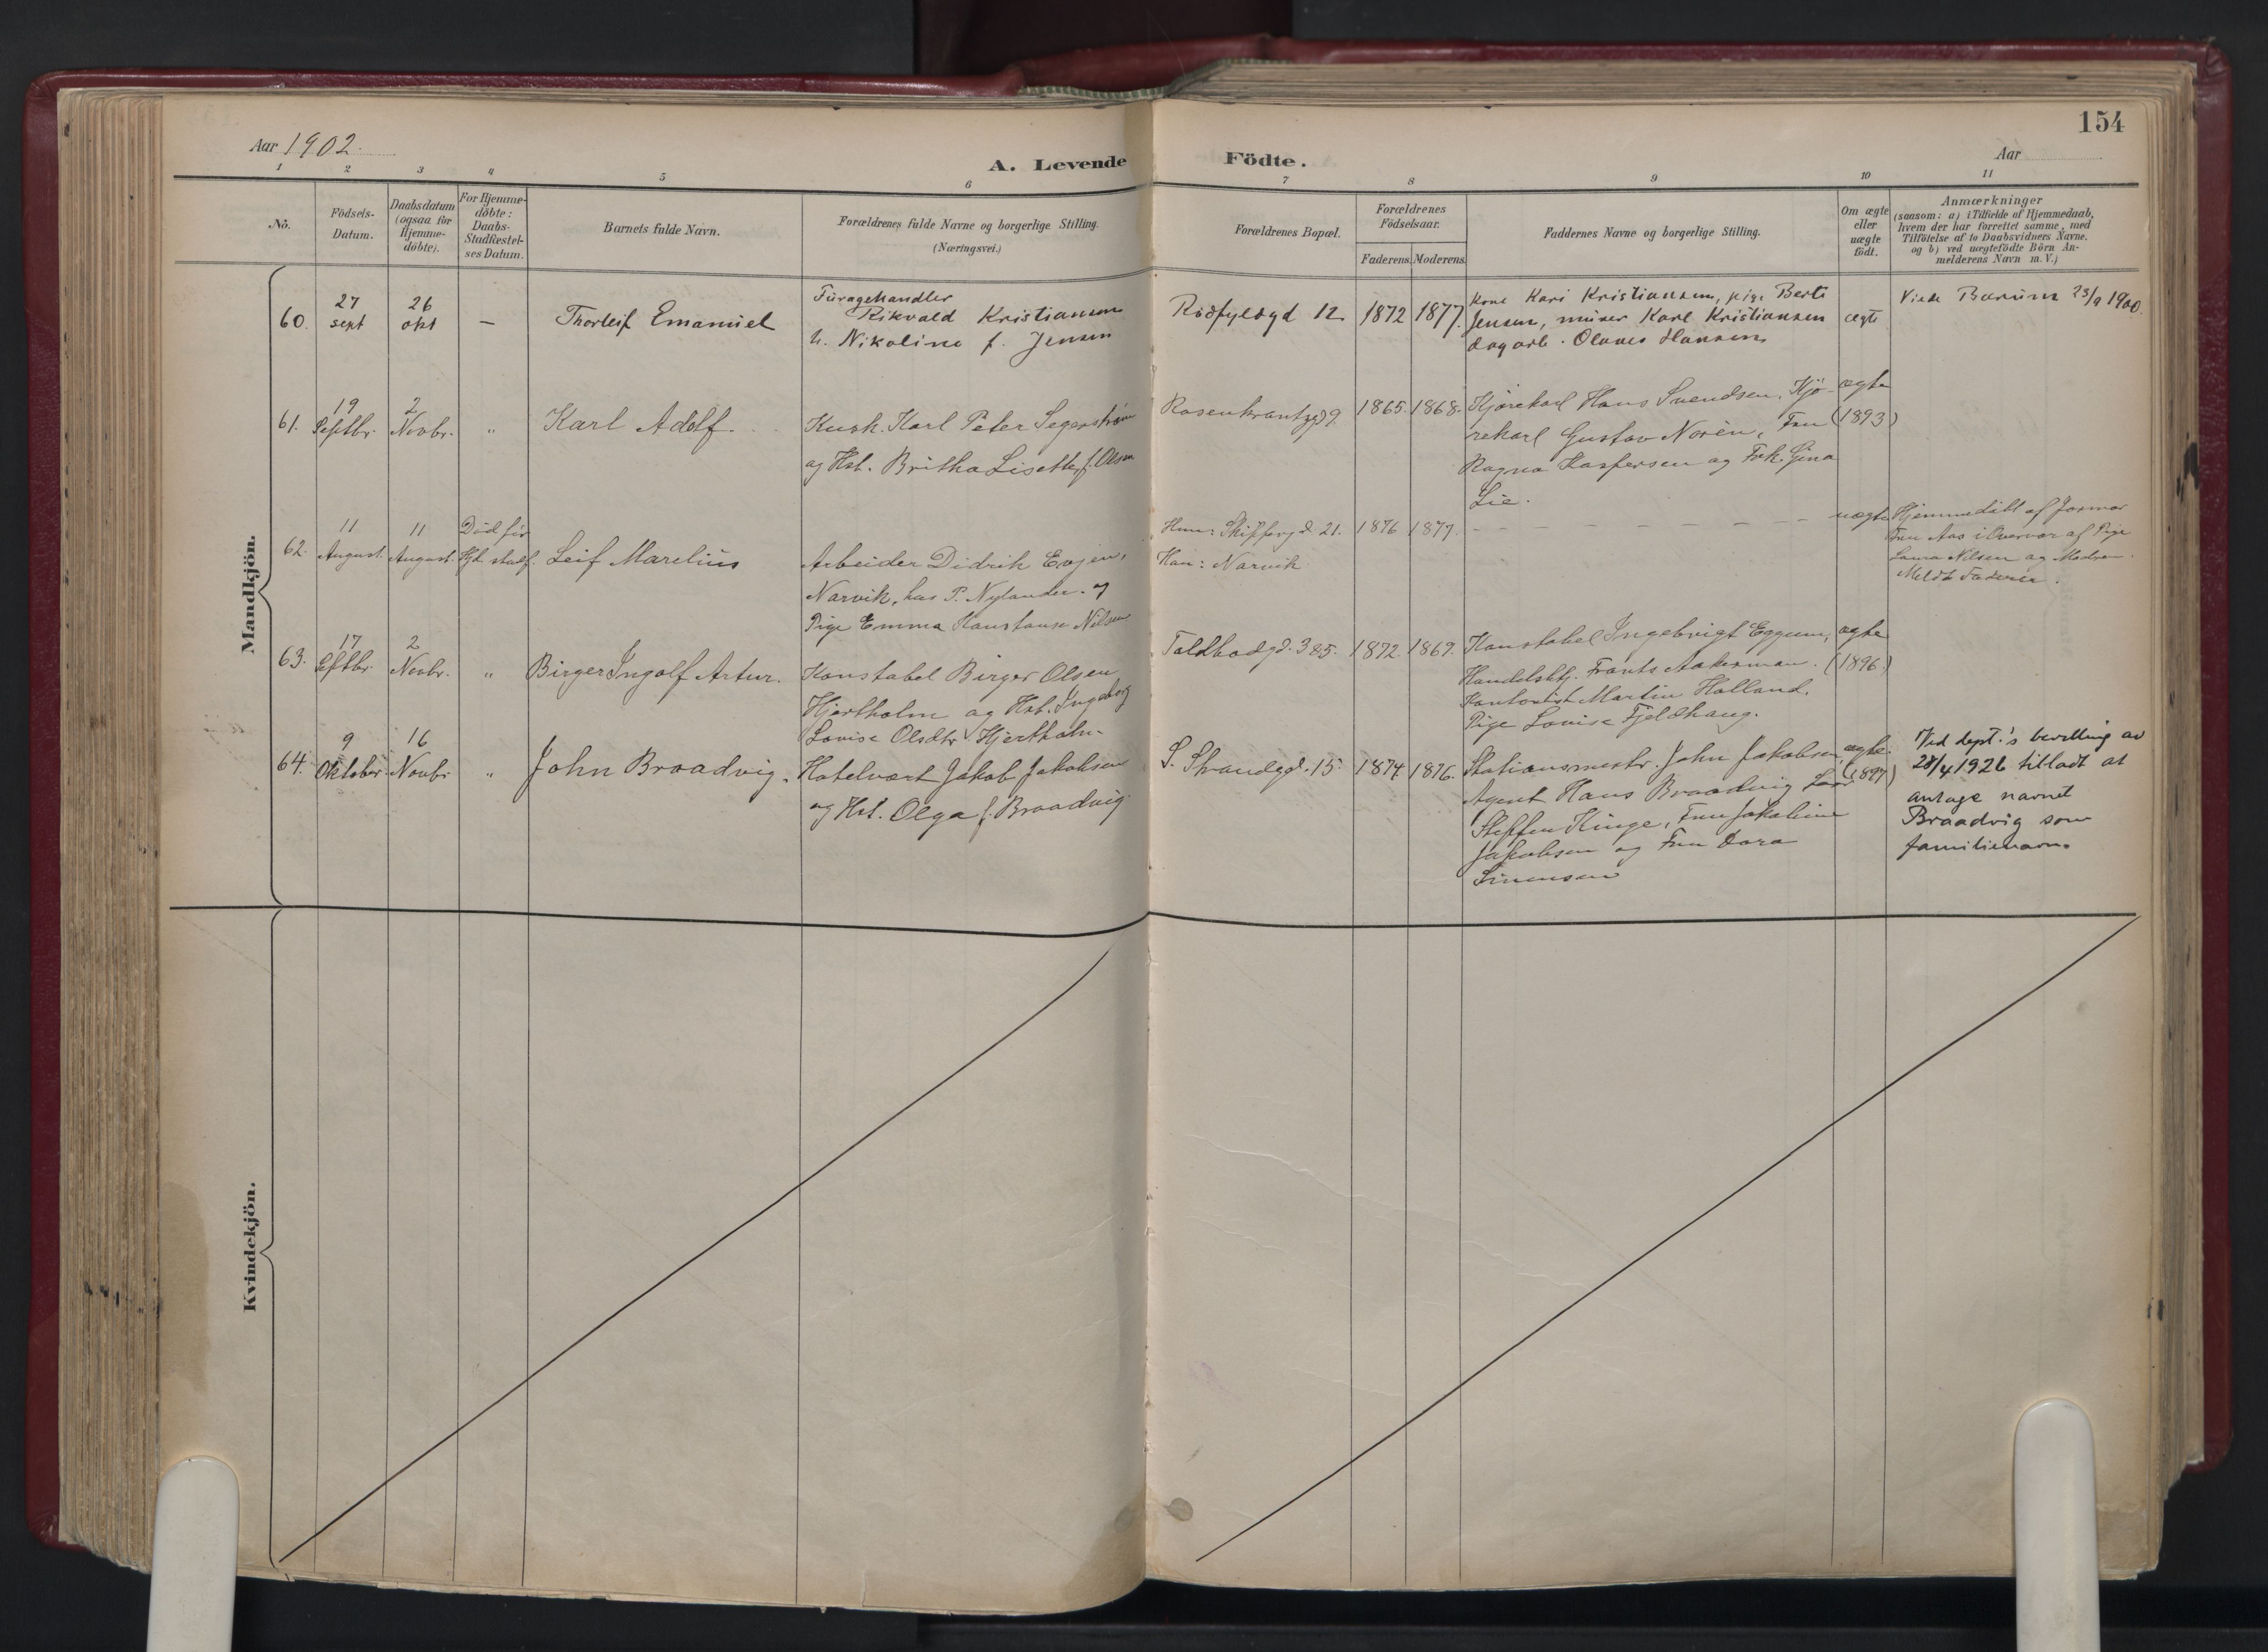 154
Aar 1902.
A. Levende Födte.
Aar
1 2 3 4 5 6 7 8 9 10 11
No.
Födsels-
Datum.
Daabsdatum
(ogsaa for
Hjemme-
döbte).
For Hjemme-
döbte:
Daabs-
Stadfestel-
ses Datum.
Barnets fulde Navn.
Forældrenes fulde Navne og borgerlige Stilling.
(Næringsvei.)
Forældrenes Bopæl.
Forældrenes
Födselsaar.
Faderens. Moderens.
Faddernes Navne og borgerlige Stilling.
Om ægte
eller
uægte
födt.
Anmærkninger
(saasom: a) i Tilfælde af Hjemmedaab,
hvem der har forrettet samme, med
Tilföielse af to Daabsvidners Navne.
og b) ved uægtefödte Börn An-
melderens Navn m. V.)
Mandkjön.
60.
27
sept
26
okt
—
Thorleif Emanuel
Furagehandler
Rikvald Kristiansen
h. Nikoline f. Jensen
12
1872
1877.
kone Kari Kristiansen, pige Berte
Jensen, murer Karl Kristiansen
dagarb. Olaves Hansen
ægte
Viede Bærum 23/9 1900.
61.
19
Septbr.
2
Novbr.
"
Karl Adolf.
Kusk. Karl Peter Segerström
og Hst. Britha Lisette f. Olsen
Rosenkrantzgd 9.
1865.
1868.
Kjörekarl Hans Svendsen, Kjö-
rekarl Gustav Norèn, Fru
Ragna Kaspersen og Frk. Gina
Lie.
ægte
(1893)
62.
11
August.
11
August.
Död för
Leif Marelius
Arbeider Didrik Evjen,
Narvik, hos P. Nylander. og
Pige Emma Konstanse Nilsen
Hun: Skipperg d. 21.
Han: Narvik
1876
1877.
uægte
Hjemmedöbt af Jormor
Fru Aas i Overvær af Pige
Laura Nilsen og Moderen.
Meldt Faderen.
63.
17
Septbr.
2
Novbr.
"
Birger Ingolf Artur.
Konstabel Birger Olsen
Hjertholm og Hst. Ingeborg
Lovise Olsdtr Hjertholm.
Toldbodgd. 385.
1872.
1869.
Konstabel Ingebrigt Eggum,
Handelsbtj. Frants Aakerman.
Kontorist Martin Holland.
Pige Lovise Fjeldhaug.
ægte
(1896.)
64.
9
Oktober
16
Novbr
"
John Braadvig.
Hotelvært Jakob Jakobsen
og Hst. Olga f. Braadvig.
S. Strandgd. 15.
1874
1876.
Stationsmestr. John Jakobsen,
Agent Hans Braadvig
Steffen Kinge, Fru Jakobine
Jakobsen og Fru Dora
Simensen
ægte.
(1897)
Ved dept.'s bevilling av
28/4 1926 tilladt at
antage navnet
Braadvig som
familienavn.
Kvindekjön.